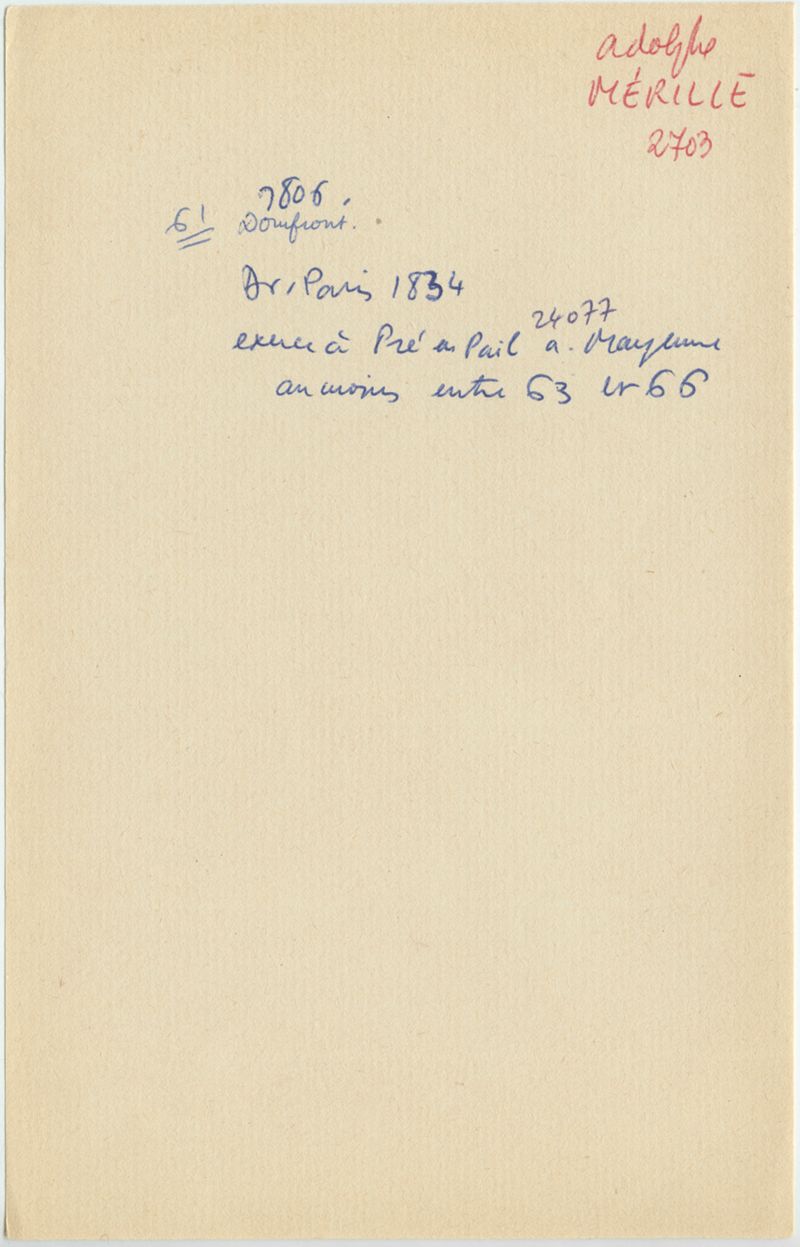 adolphe
MÉRILLE
2703
1806.
61 Domfront.
Dr. Paris 1834
24077
exerce à Pré en Pail a. Mayenne
au moins entre 63 et 66